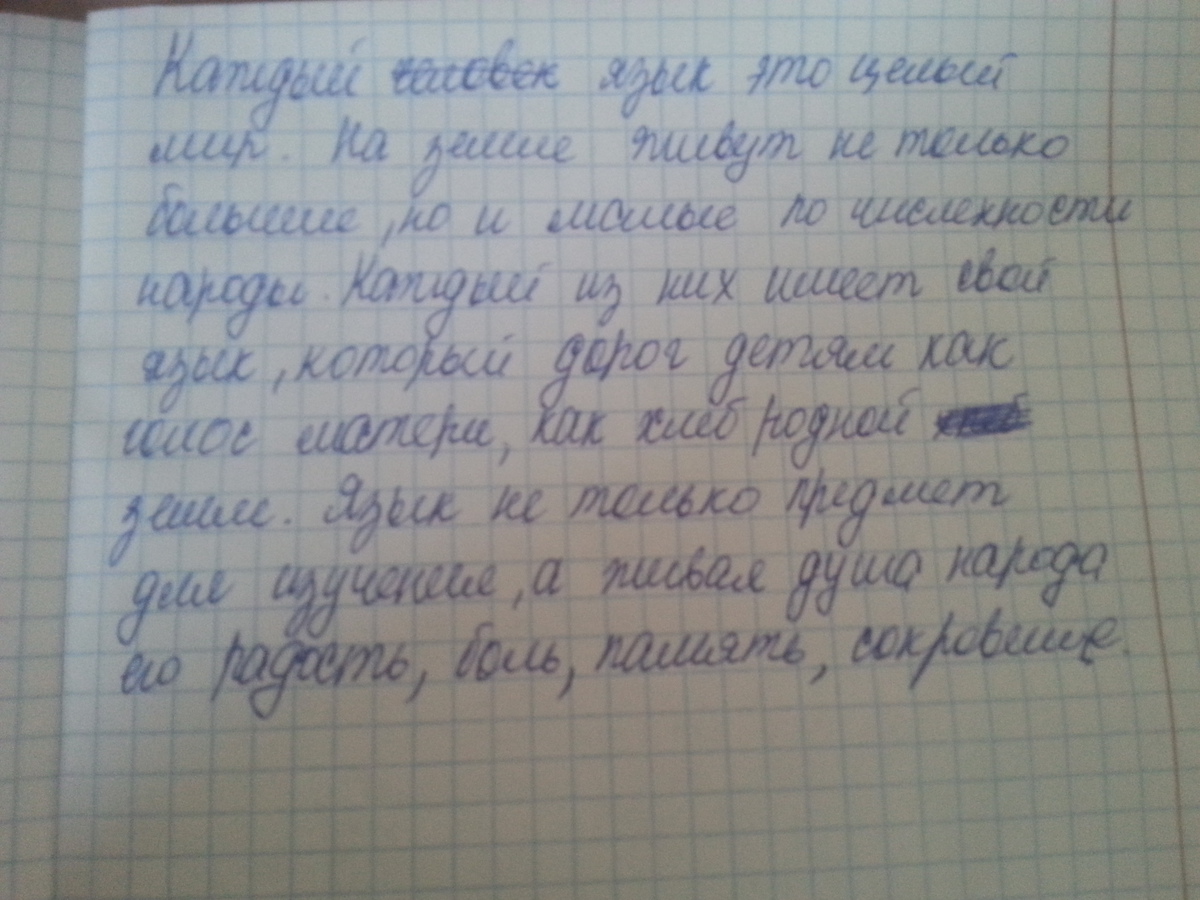 Каждый человек язык это целый
мир. На земле живут не только
большие, но и малые по численности
народы. Каждый из них имеет свой
язык, который дорог детям как
голос матери, как хлеб родной
земли. Язык не только предмет
для изучения, а живая душа народа
его радость, боль, память, сокровище.